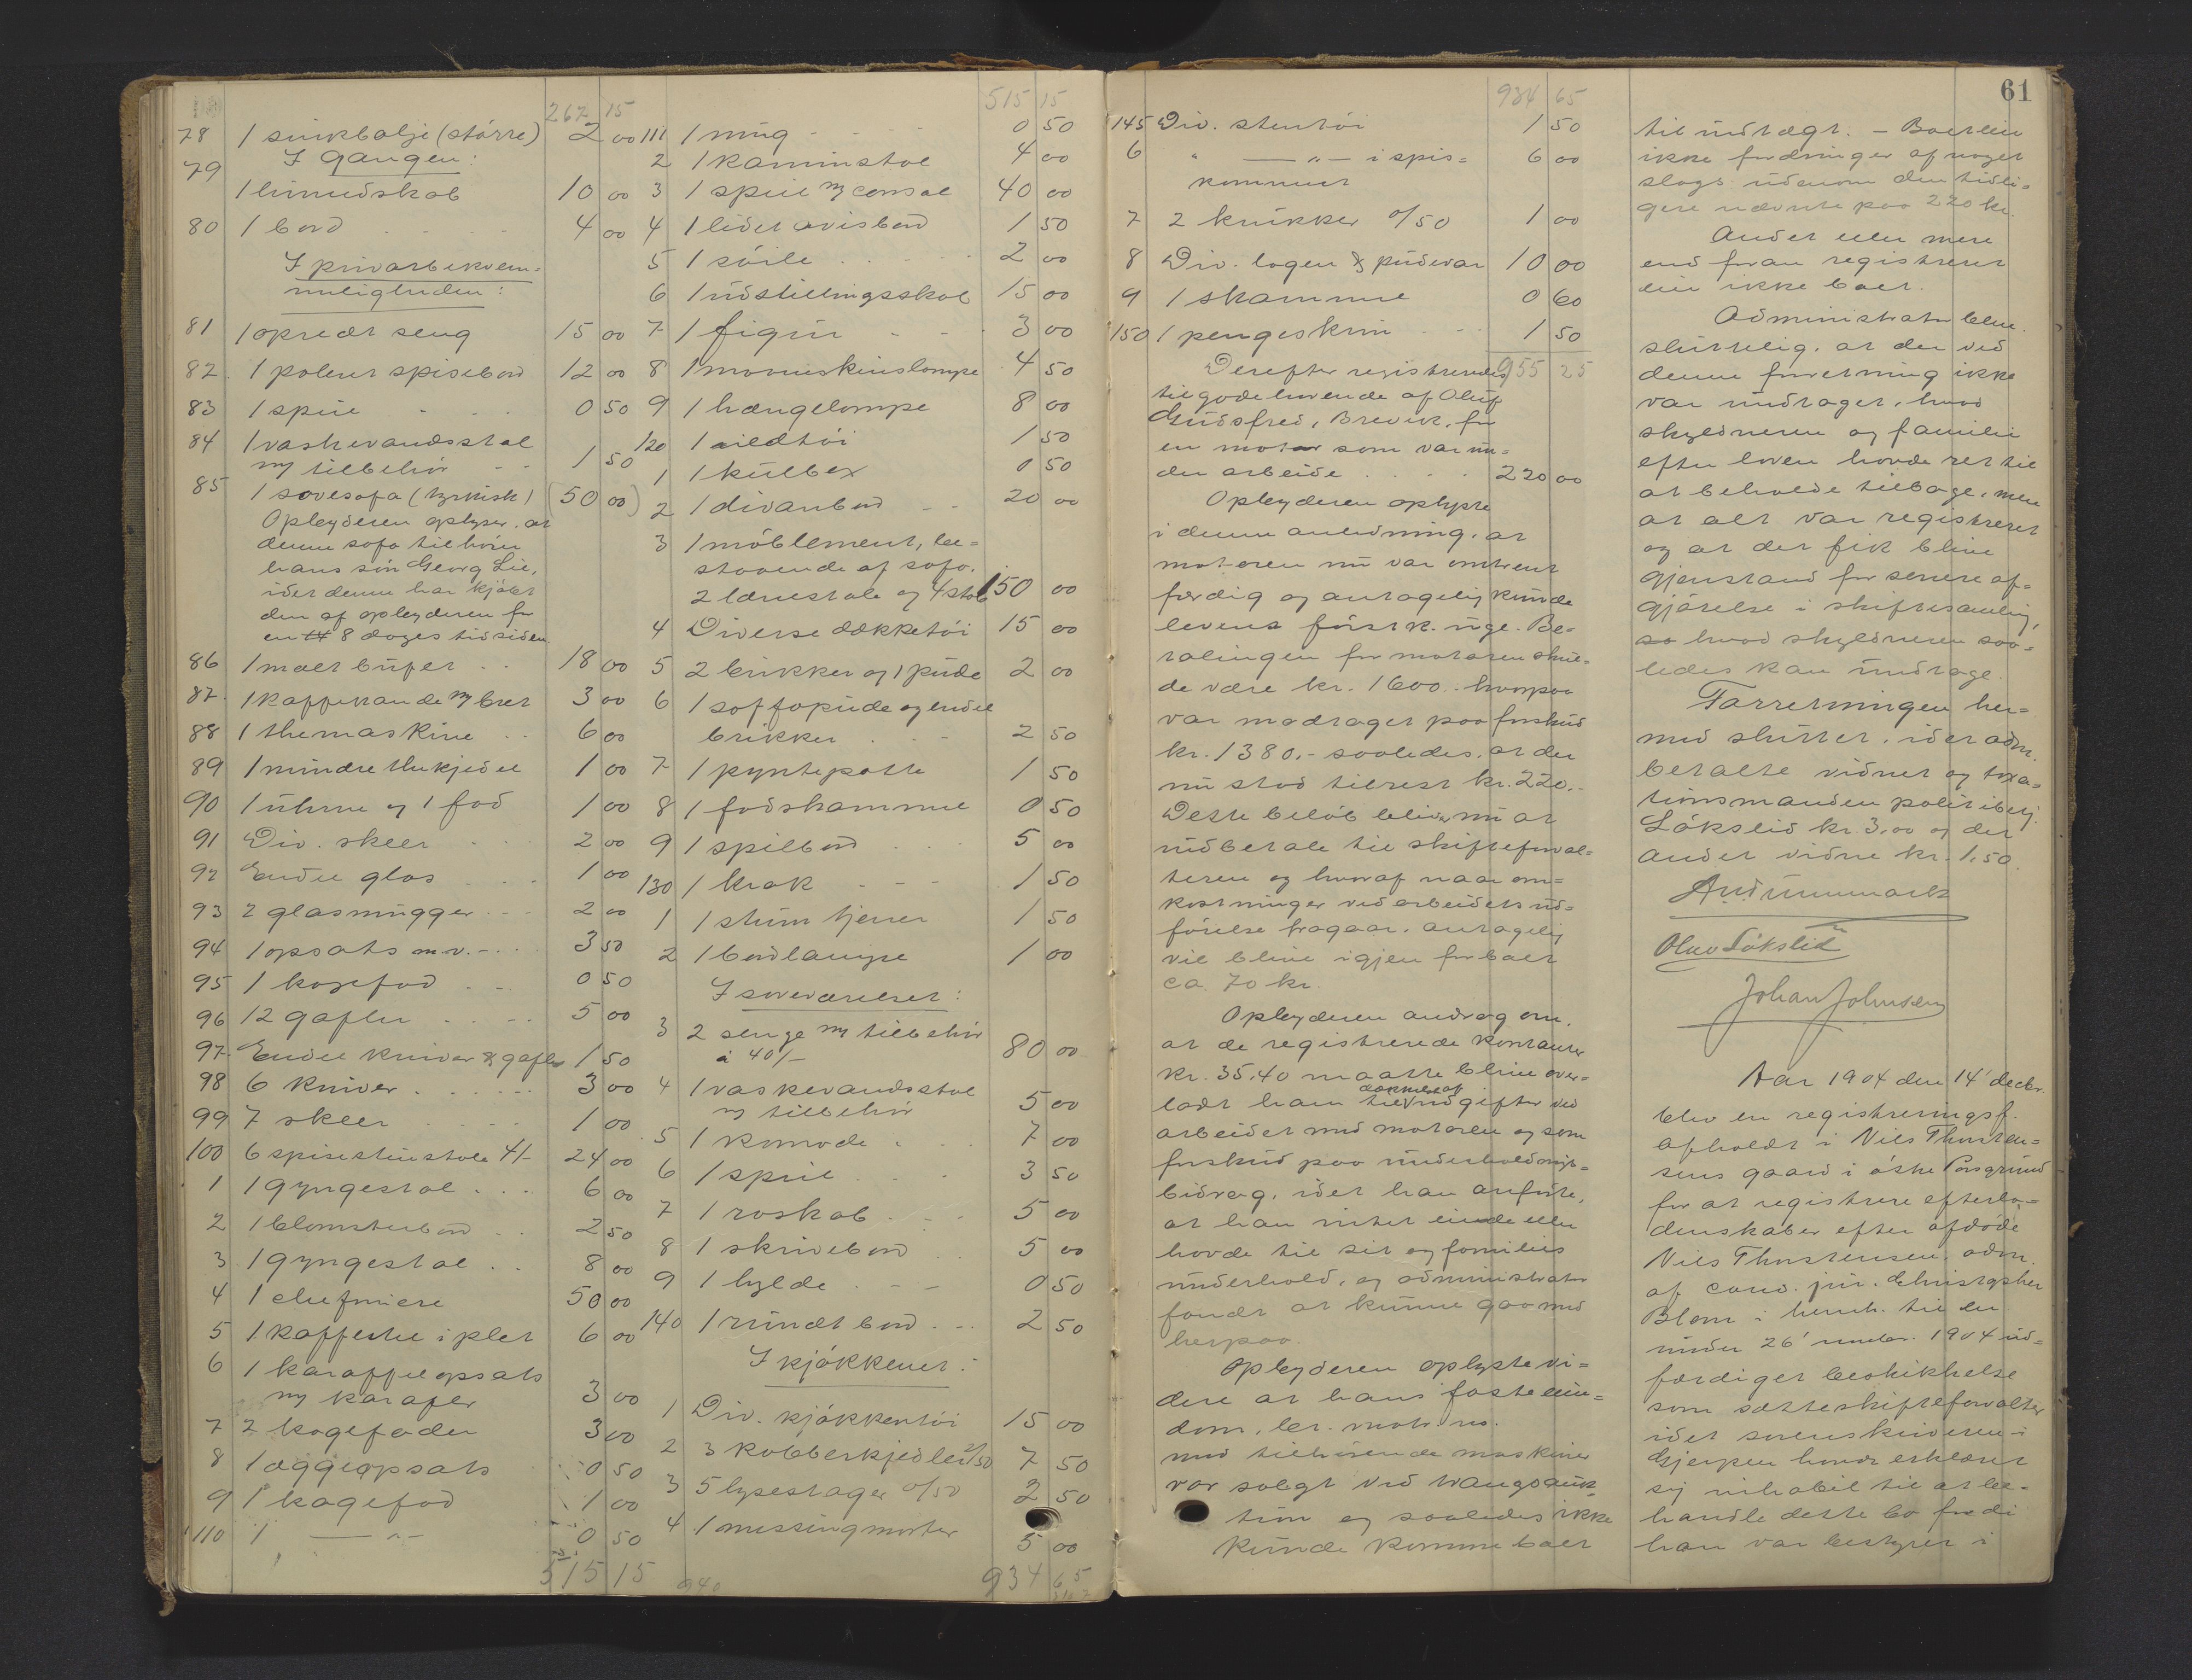 267 15
78 1 sinkbalje (større) 2 00
I gangen:
79
1 linnedskab 10 00
80 1 bord 4 00
I privatbekvem=
meligheden:
81 1 opredt seng 15 00
82. 1 poleret spisebord 12 00
83 1 speil 0 50
84 1 vaskevandsstol
m/ tilbehør 1 50
85 1 sovesofa (tyrkisk) (50 00)
Opbyderen oplyser, at
denne sofa tilhører
hans søn Georg Lie,
idet denne har kjøbt
den af opbyderen for
en 14 8 dages tid siden
86 1 malt bufet 18 00
87. 1 kaffekande m/ bret 3 00
88 1 themaskine 6 00
89 1 mindre thekjedel 1 00
90 1 uhrne og 1 fad 1 00
91 Div. skeer 2 00
92 Endel glas 1 00
93 2 glasmugger 2 00
94 1 opsats m.v. 3 50
95 1 kagefad 0 50
96 12 gafler 5 00
97. Endel kniver & gafler 1 50
98 6 kniver 3 00
99 7 skeer 1 00
100 6 spisestuestole 4/- 24 00
1 1 gyngestol 6 00
2 1 blomsterbord 2 50
3 1 gyngestol 8 00
4 1 chefoniere 50 00
5 1 kaffestel i plet 6 00
6 1 karaffelopsats
m/ karafler 3 00
7 2 kagefader 3 00
8 1 æggeopsats 0 50
9 1 kagefad 1 00
110 1 —"— 0 50
515 15
515 15
111 1 mug 0 50
2 1 kaminstol 4 00
3 1 speil m/ consol 40 00
4 1 lidet avisbord 1 50
5 1 søile 2 00
6 1 udstillingsskab 15 00
7 1 figur 3 00
8 1 maaneskinslampe 4 50
9 1 hængelampe 8 00
120 1 ildtøi 1 50
1 1 kulbox 0 50
2 1 divanbord 20 00
3 1 møblement, be=
staaende af sofa.
2 lænestole og 4 stole 150 00
4 Diverse dækketøi 15 00
5 2 brikker og 1 pude 2 00
6 1 soffapude og endel
brikker 2 50
7 1 pyntepotte 1 50
8 1 fodskammel 0 50
9 1 spilbord 5 00
130 1 krak 1 50
1 1 stum tjener 1 50
2 1 bordlampe 1 00
I soveværelset:
3 2 senge m/ tilbehør
à 40/- 80 00
4 1 vaskevandsstol
m/ tilbehør 5 00
5 1 komode 7 00
6 1 speil 3 50
7 1 roskab 5 00
8 1 skrivebord 5 00
9 1 hylde 0 50
140 1 rundt bord 2 50
I kjøkkenet:
1 Div. kjøkkentøi 15 00
2 3 kobberkjedler 2/50 7 50
3 5 lysestager 0/50 2 50
4 1 messingmorter 5 00
934 65
934 65
145 Div. stentøi 1 50
6 " —"— i spis=
kammeret 6 00
7 2 krukker 0/50 1 00
8 Div. lagen & pudevar 10 00
9 1 skammel 0 60
150 1 pengeskrin 1 50
Derefter registreredes 955 25
tilgodehavende af Oluf
Gudsfred, Brevik, for
en motor som var un=
der arbeide 220 00
Opbyderen oplyste
i denne anledning, at
motoren nu var omtrent
færdig og antagelig kunde
leveres førstk. uge. Be=
talingen for motoren skul=
de være kr. 1600.- hvorpaa
var modtaget paa forskud
kr. 1380.- saaledes, at der
nu stod tilrest kr. 220.-
Dette beløb bliver nu at
indbetale til skifteforval=
teren og hvoraf naar om=
kostninger ved arbeidets ud=
førelse fragaar, antagelig
vil blive igjen for boet
ca. 70 kr.
Opbyderen androg om,
at de registrerede kontanter
kr. 35,40 maatte blive over=
ladt ham til dækkelse af udgifter ved
arbeidet med motoren og som
forskud paa underholdnings=
bidrag, idet han anførte,
at han intet eiede eller
havde til sit og families
underhold, og administrator
fandt at kunne gaa med
herpaa.
Opbyderen oplyste vi=
dere at hans faste eien=
dom, br. matr. no.
med tilhørende maskiner
var solgt ved tvangsauk=
tion og saaledes ikke
kunde komme boet
61
til indtægt. – Boet eier
ikke fordringer af noget
slags udenom den tidli=
gere nævnte paa 220 kr.
Andet eller mere
end foran registreret
eier ikke boet.
Administrator bem.
sluttelig, at der ved
denne forretning ikke
var undtaget, hvad
skyldneren og familie
efter loven havde ret til
at beholde tilbage, men
at alt var registreret
og at det fik blive
gjenstand for senere af=
gjørelse i skiftesamling,
so hvad skyldneren saa=
ledes kan undtage.
Forretningen her=
med sluttet, idet adm.
betalte vidnet og taxa=
tionsmanden politibetj.
Løkslid kr. 3,00 og det
andet vidne kr. 1,50.
Olav Løkslid
Johan Johnsen
Aar 1904 den 14' decbr.
blev en registreringsf.
afholdt i Niels Thorsten=
sens gaard i østre Porsgrund
for at registrere efterla=
denskaber efter afdøde
Niels Thorstensen, adm.
af cand. jur. Christopher
Blom i henh. til en
under 26' novbr. 1904 ud=
færdiget beskikkelse
som sætteskifteforvalter
idet sorenskriveren i
Gjerpen havde erklæret
sig inhabil til at be=
handle dette bo fordi
han var bestyrer i